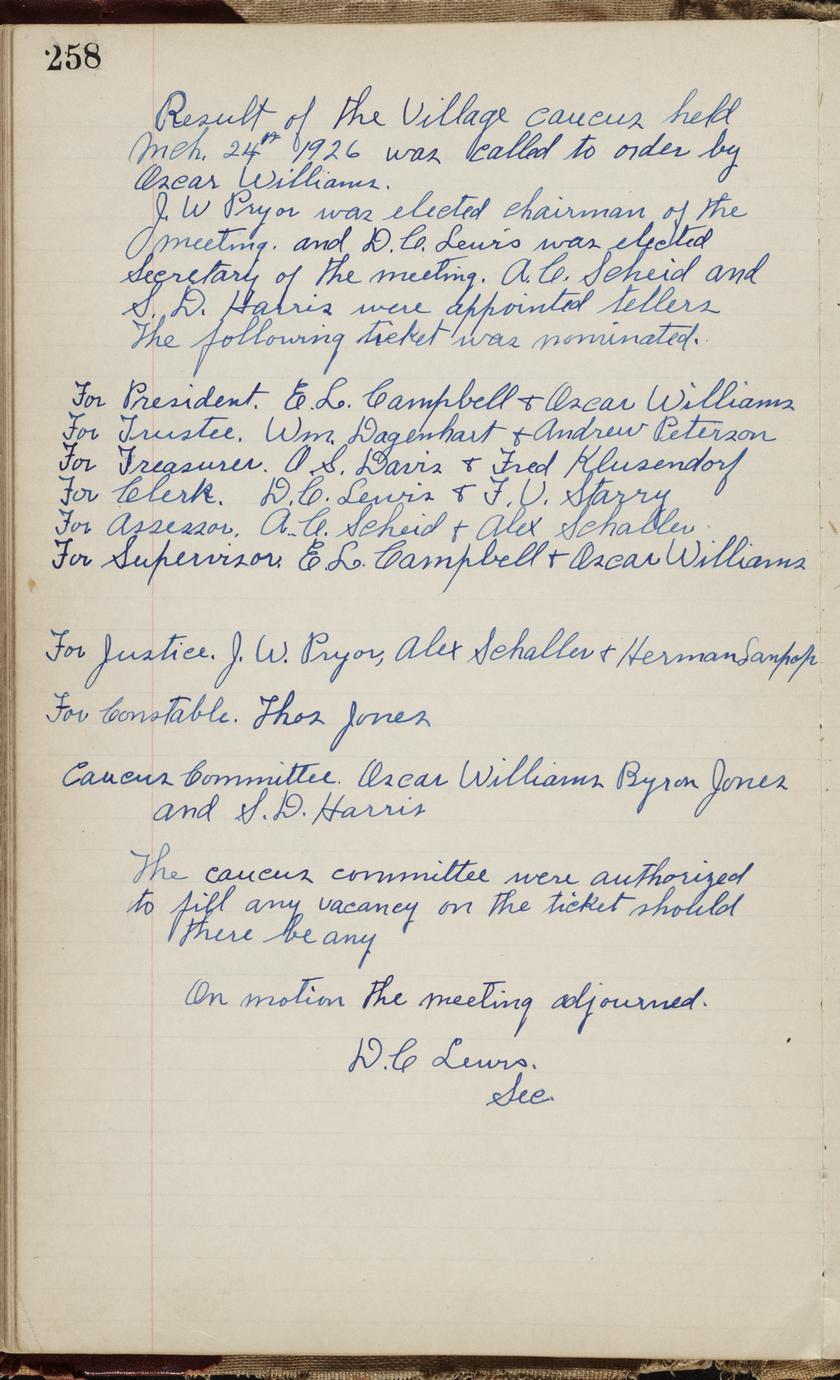 258
Result of the Village caucus held
Mch. 24th 1926 was called to order by
Oscar Williams.
J. W Pryor was elected chairman of the
meeting. and D.C. Lewis was elected
secretary of the meeting. A.C. Scheid and
S. D. Harris were appointed tellers
The following ticket was nominated.
For President. E.L. Campbell & Oscar Williams
For Trustee. Wm. Dagenhart & Andrew Peterson
For Treasurer. O S. Davis & Fred Klusendorf
For Clerk. D.C. Lewis & F. V. Starry
For Assessor. A.C. Scheid & Alex Schaller
For Supervisor. E.L. Campbell & Oscar Williams
For Justice. J. W. Pryor, Alex Schaller & Herman
For Constable. Thos Jones
Caucus Committee. Oscar Williams Byron Jones
and S.D. Harris
The caucus committee were authorized
to fill any vacancy on the ticket should
there be any
On motion the meeting adjourned.
D.C Lewis.
Sec.